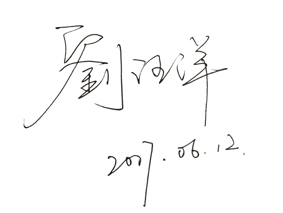 劉汉洋
2007.06.12.